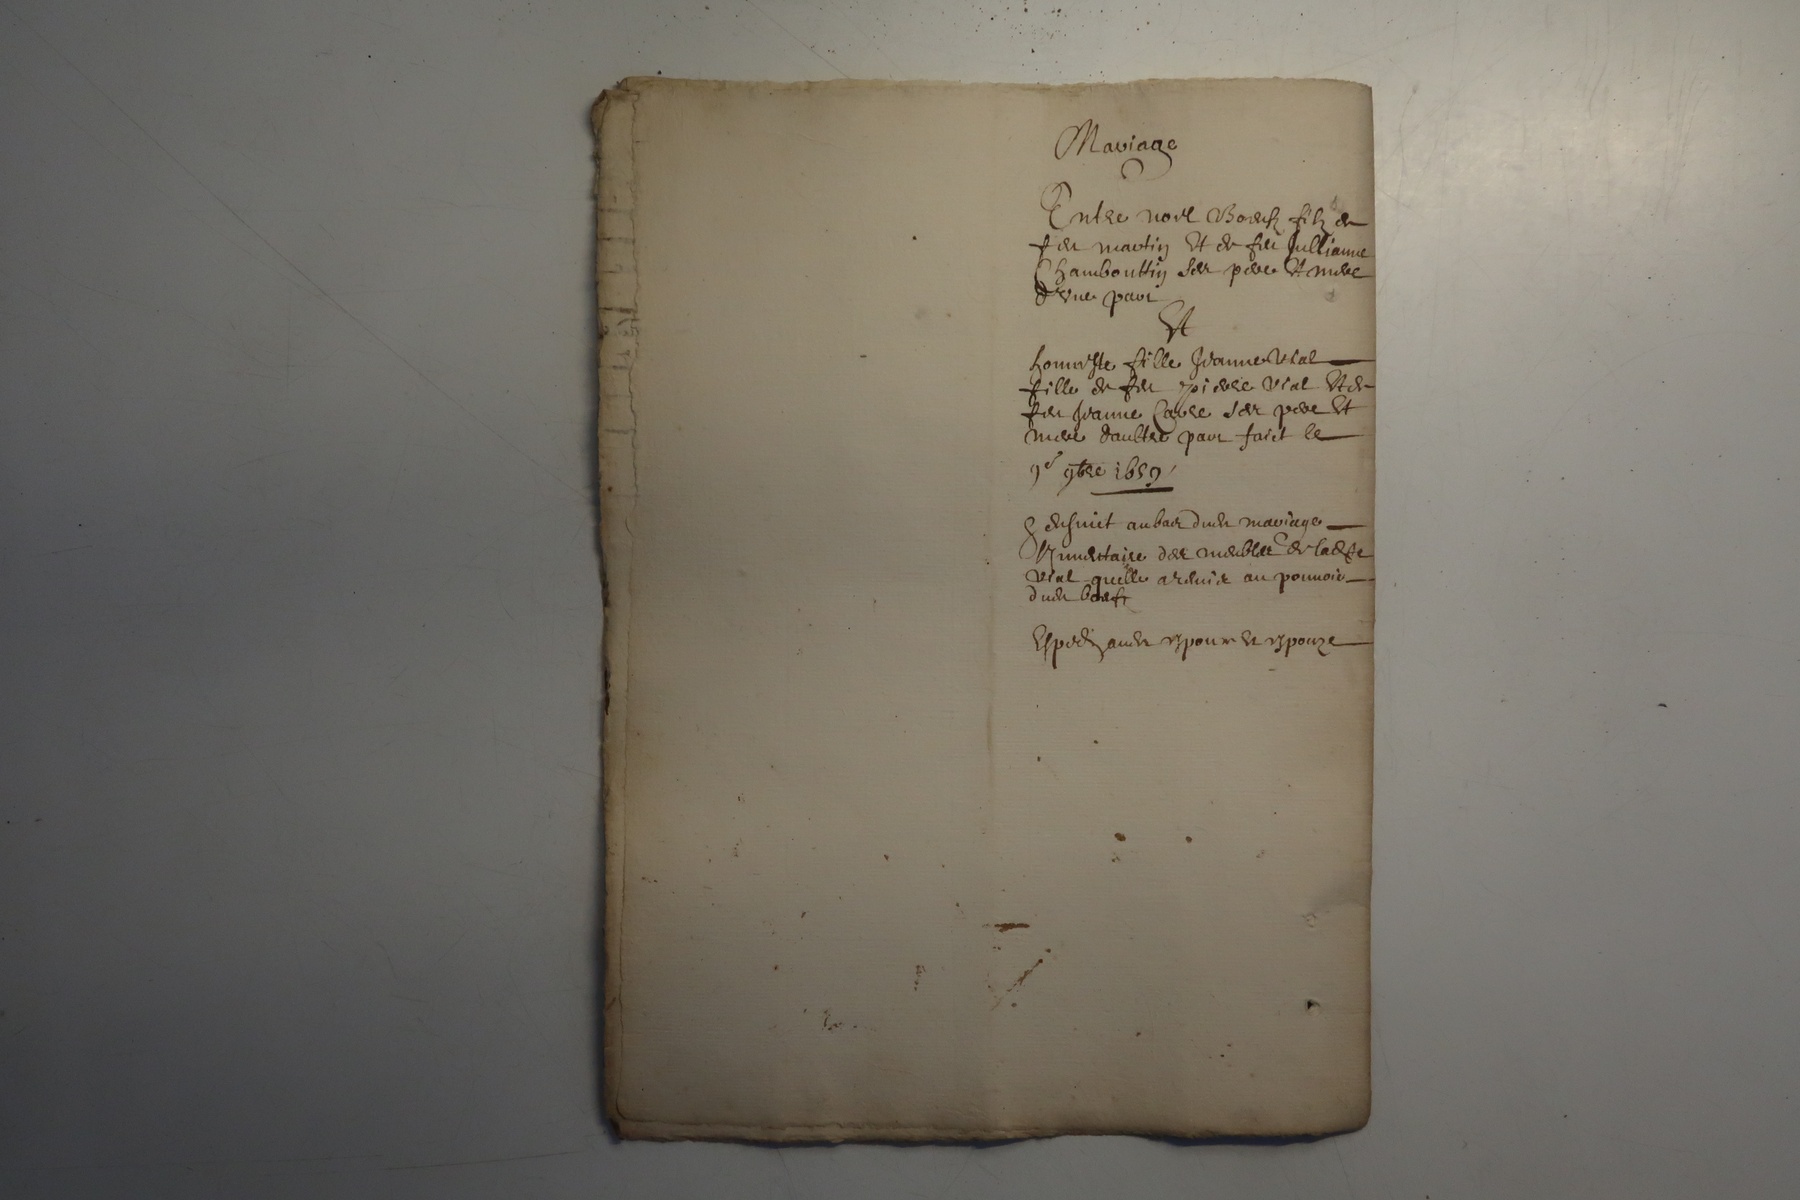 Mariage
Entre noel Boeuf filz de
feu martin Et de feu Jullianne
Chambouttin ses pere Et mere
d'vne part
Et
honneste fille Jeanne Vial
fille de feu pierre Vial Et de
feu Jeanne Cavre ses pere Et
mere daultre part faict le
9e 9bre 1659
Ensuict au bas dudt mariage
Linventaire des meubles de ladte
Vial quelle a remis au pouvoir
dudt boeuf
Expedié audt espoux et espouze